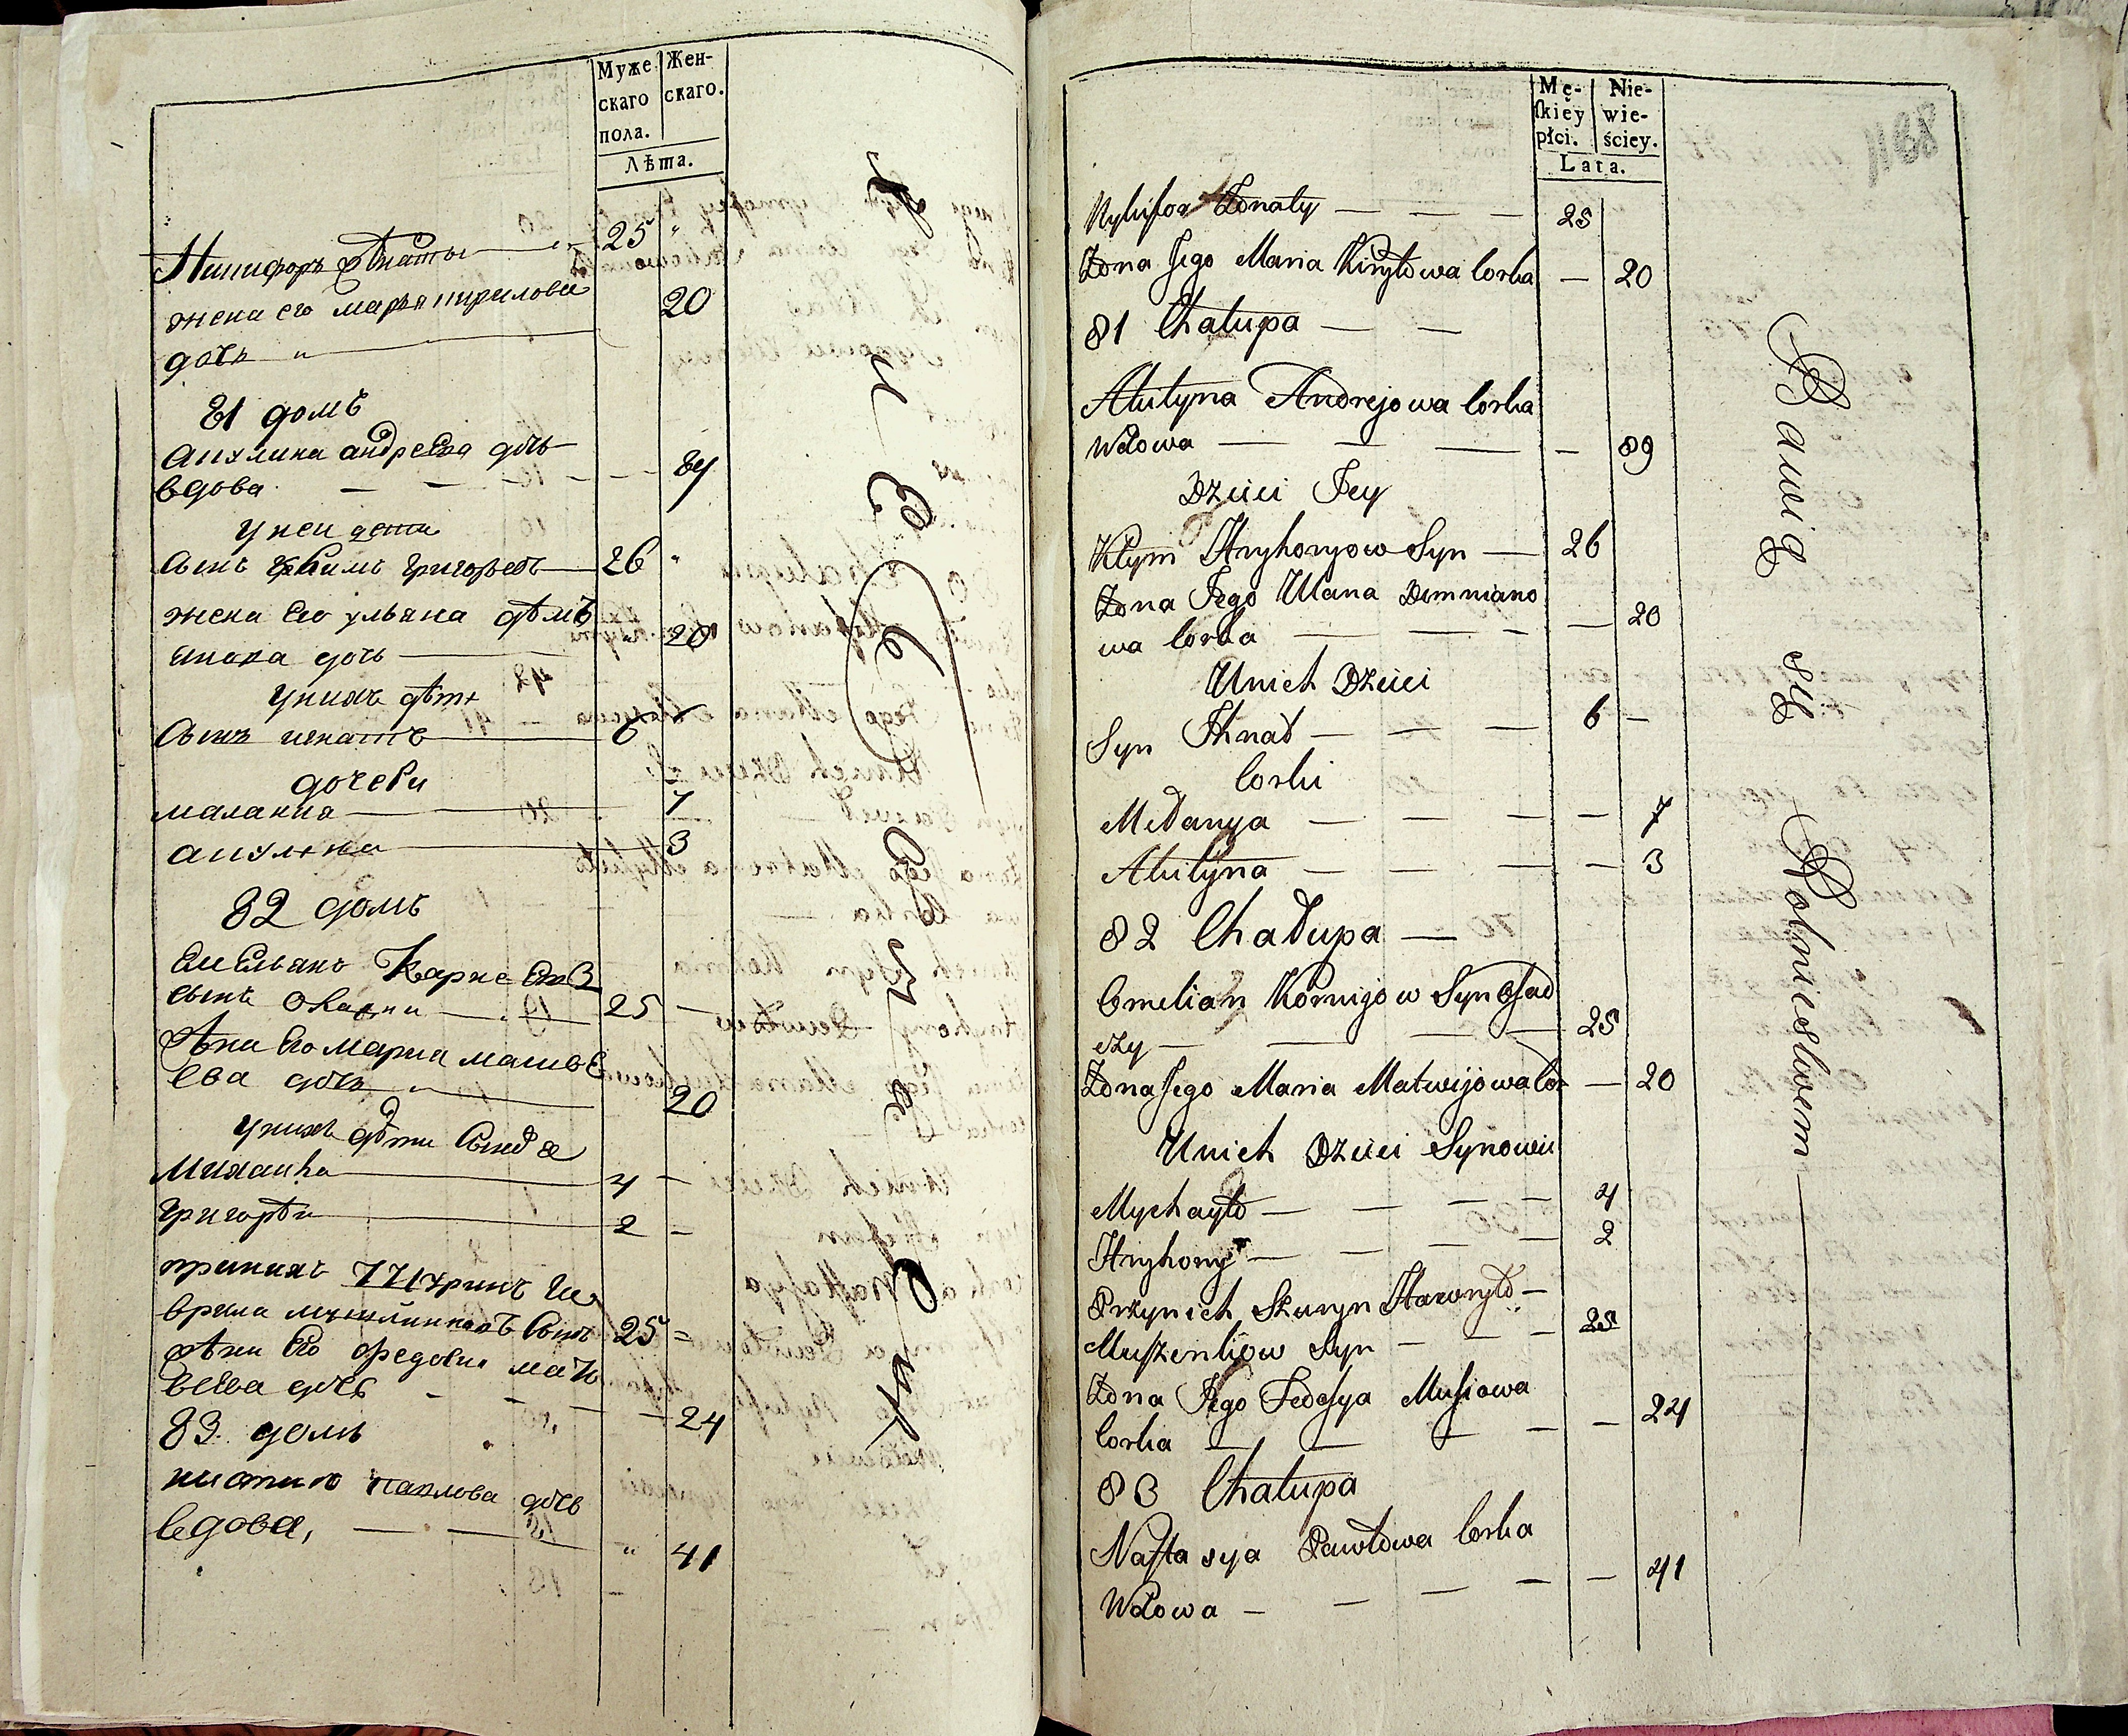 Муже
скаго
пола.
Жен-
скаго.
Лѣта.
Никифоръ жѣнаты 25 "
жена его марья кирилова 20
дочь "
81 домъ
Акулина андреева дочь
вдова — — — — 89
у неи дети
Сынъ Климъ Григорьевъ 26 "
жена Его ульяна дѣмъ
янова дочь — 20
у нихъ дѣти
Сынъ игнатъ — 6
дочеви
маланка — 7
акулина — 3
82 домъ
Емельянъ Карнеевъ
сынъ 25 —
жѣна Его Мариа матвѣ
ева дочь " 20
у нихъ дѣти Сынове
Михаило — 4 —
Григорѣи — 2 —
принихъ Га
врила Сынъ 25 =
жѣна Его федосия
дочь — — — 24
83. домъ
Павлова дочь
вдова, — — " 41
Mę-
skiey
płci.
Nie-
wie-
ściey.
Lata.
Nykifor Żonaty — — — 25
Żona Jego Maria Kiryłowa Corka — 20
81 Chałupa — —
Akulyna Andrejowa Corka
Wdowa — — — — 89
Dzieci Jey
Kłym Hryhoryow Syn — 26
Żona Jego Ulana Demniano
wa Corka — — — — 20
Unich Dzieci
Syn Ihnat — — — 6 —
Corki
Mełanya — — — — — 7
Akulyna — — — — 3
82 Chałupa —
Omelian Kornijow Syn Osad
czy — — — — 25
Żona Jego Maria Matwijowa Cor — 20
Unich Dzieci Synowie
Mychayło — — — — 4
Hryhory — — — — 2
Przynich Szuryn Hawryło —
Muszenkow Syn — — — 25
Żona Jego Fedosya Musiowa
Corka — — — — — 24
83 Chałupa
Nastasya Pawłowa Corka
Wdowa — — — — — 41
Bawią się Rolnictwem